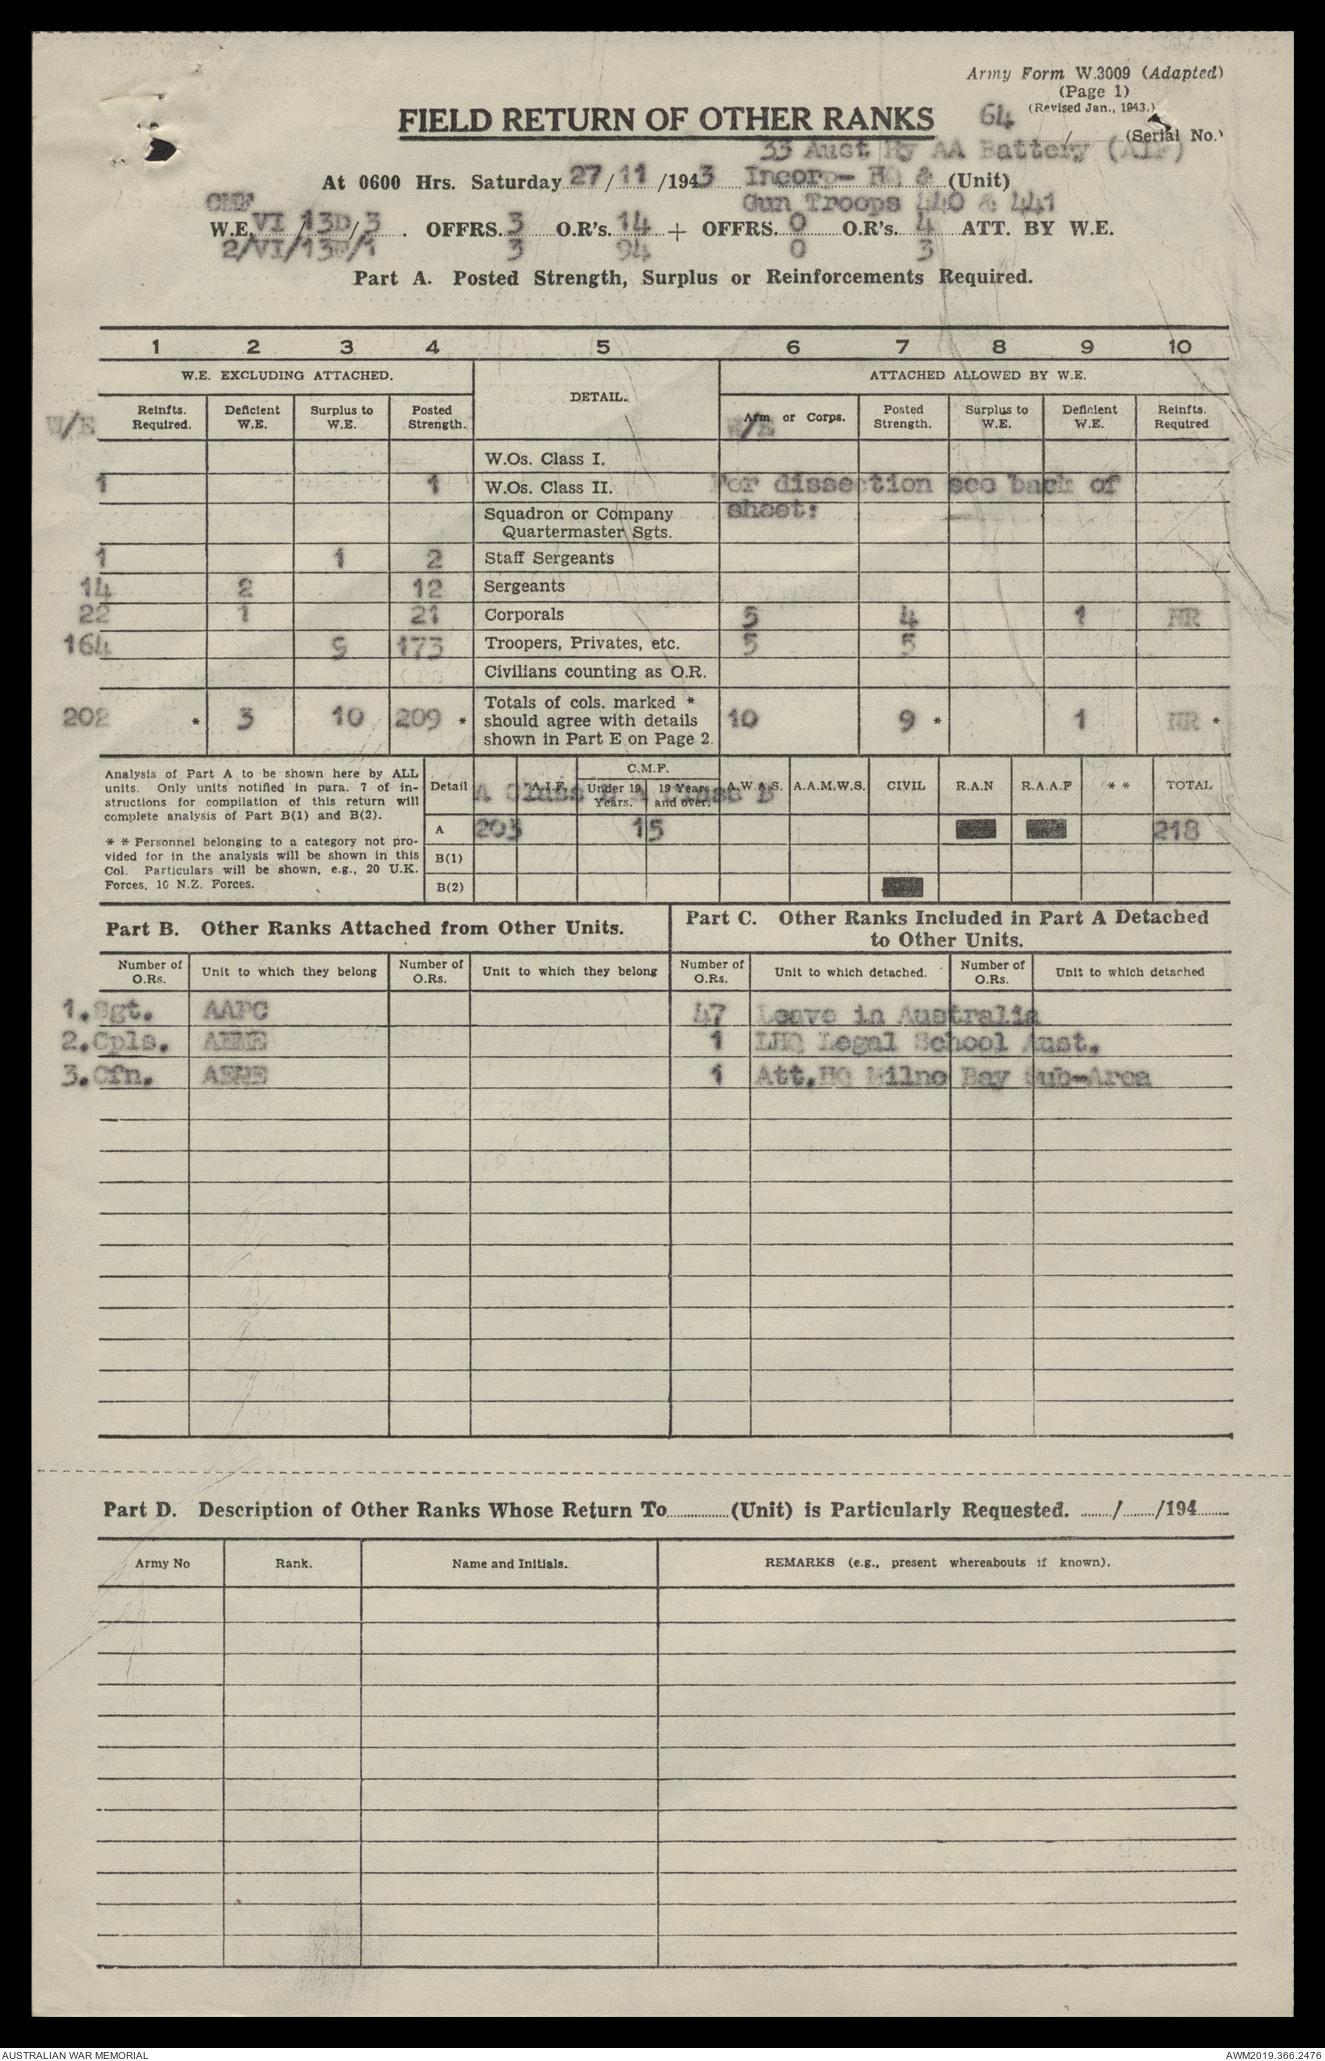 Army Form W.3009 (Adapted)
(Page 1)
(Revised Jan., 1943.)
FIELD RETURN OF OTHER RANKS
64 / (Serial No.)
33 Aust Hy AA Battery (AIF)
At 0600 Hrs. Saturday 27/11/1943 Incorp- HQ & (Unit)
CMF Gun Troops 440 & 441
W.E. VI/13D/3. OFFRS. 3 O.R's. 14 + OFFRS. 0 O.R's. 4 ATT. BY W.E.
2/VI/13F/1 3 94 0 3
Part A. Posted Strength, Surplus or Reinforcements Required.
1 2 3 4 5 6 7 8 9 10
W.E. EXCLUDING ATTACHED. DETAIL. ATTACHED ALLOWED BY W.E.
W/E Reinfts. Required. Deficient W.E. Surplus to W.E. Posted Strength. W/E Arm or Corps. Posted Strength. Surplus to W.E. Deficient W.E. Reinfts. Required
W.Os. Class I.
1 1 W.Os. Class II. For dissection see back of
Squadron or Company sheet:
Quartermaster Sgts.
1 1 2 Staff Sergeants
14 2 12 Sergeants
22 1 21 Corporals 5 4 1 NR
164 9 173 Troopers, Privates, etc. 5 5
Civilians counting as O.R.
202 * 3 10 209 * Totals of cols. marked * should agree with details shown in Part E on Page 2. 10 9 * 1 NR *
Analysis of Part A to be shown here by ALL
units. Only units notified in para. 7 of in-
structions for compilation of this return will
complete analysis of Part B(1) and B(2).
* * Personnel belonging to a category not pro-
vided for in the analysis will be shown in this
Col. Particulars will be shown, e.g., 20 U.K.
Forces, 10 N.Z. Forces.
C.M.F.
Detail A.I.F. Under 19 Years. 19 Years and over. A.W.A.S. A.A.M.W.S. CIVIL R.A.N R.A.A.F * * TOTAL
A Class A Class B
A 203 15 218
B(1)
B(2)
Part B. Other Ranks Attached from Other Units.
Part C. Other Ranks Included in Part A Detached
to Other Units.
Number of O.Rs. Unit to which they belong Number of O.Rs. Unit to which they belong Number of O.Rs. Unit to which detached. Number of O.Rs. Unit to which detached
1.Sgt. AAPC 47 Leave in Australia
2.Cpls. AEME 1 LHQ Legal School Aust.
3.Cfn. AEME 1 Att.HQ Milne Bay Sub-Area
Part D. Description of Other Ranks Whose Return To (Unit) is Particularly Requested. / /194
Army No Rank. Name and Initials. REMARKS (e.g., present whereabouts if known).
AUSTRALIAN WAR MEMORIAL AWM2019.366.2476